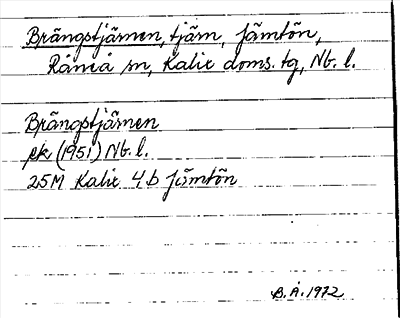 Brängstjärnen, tjärn, Jämtön,
Råneå sn, Kalix doms. tg, Nb. l.
Brängstjärnen
ek (1951) Nb. l.
25M Kalix 4b Jämtön
B.Å. 1972